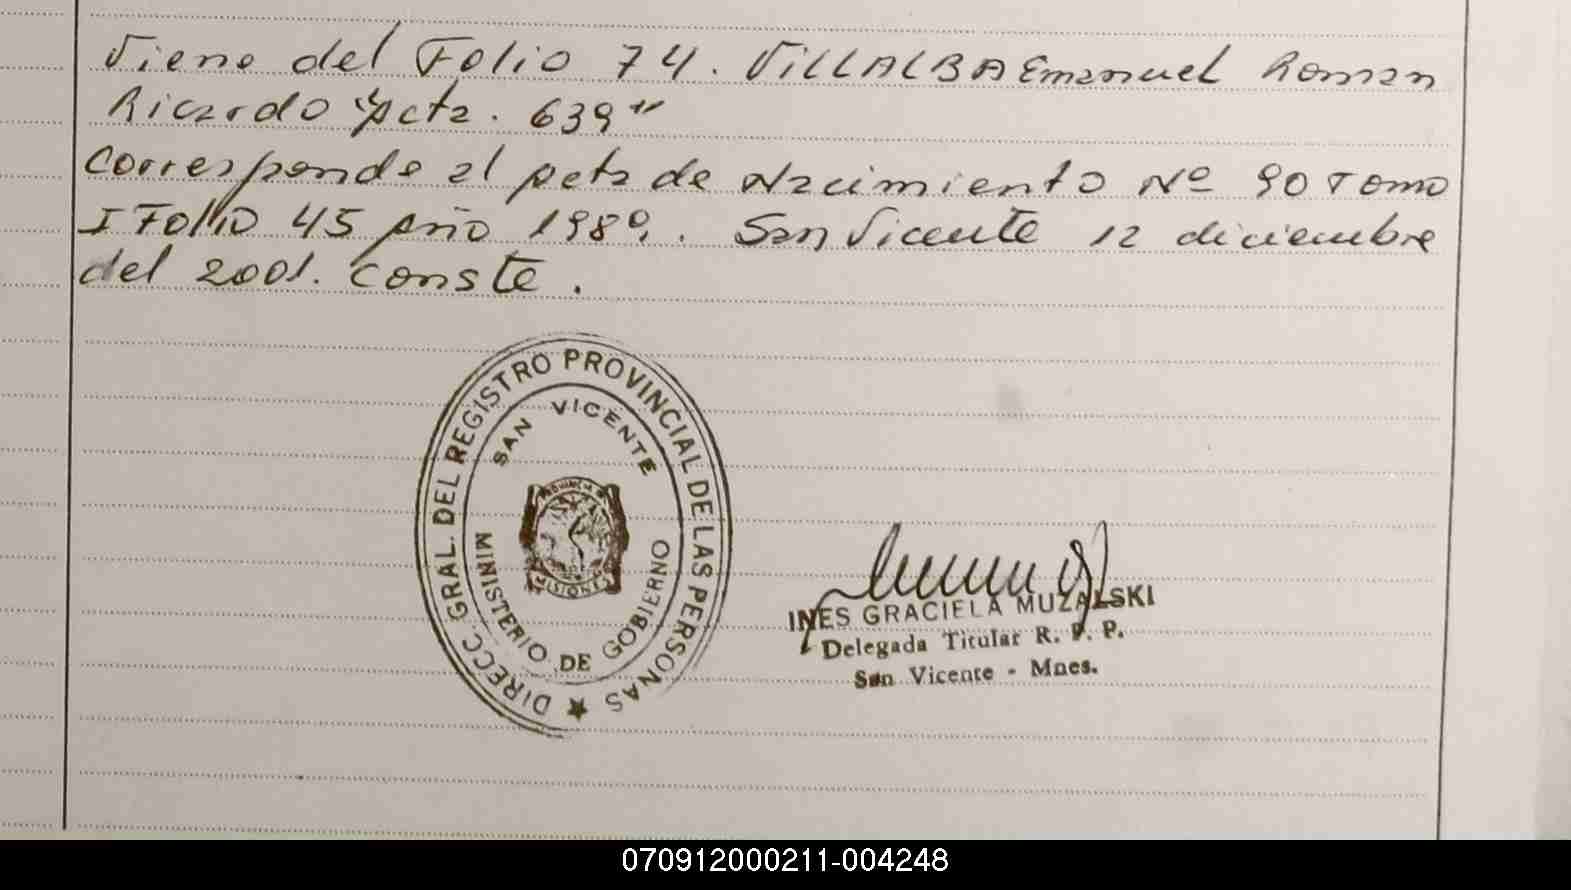 Viene del Folio 74. VILLALBA Emanuel Roman
Ricardo "Acta. 639"
Corresponde al Acta de Nacimiento Nº 90 Tomo
I Folio 45 Año 1980. San Vicente 12 diciembre
del 2001. Conste.
DIRECC. GRAL. DEL REGISTRO PROVINCIAL DE LAS PERSONAS
SAN VICENTE
MINISTERIO DE GOBIERNO
MISIONES
INES GRACIELA MUZALSKI
Delegada Titular R. P. P.
San Vicente - Mnes.
070912000211-004248